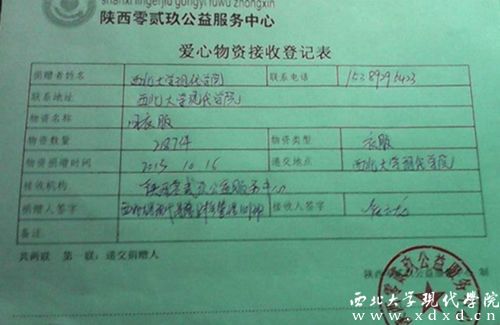 shanxi lingerjiu gongyi fuwu zhongxin
陕西零贰玖公益服务中心
爱心物资接收登记表
捐赠者姓名 西北大学现代学院 联系电话
联系地址 西北大学现代学院
物资名称 衣服
物资数量 287件 物资类型 衣服
物资捐赠时间 2013.10.16 递交地点 西北大学现代学院
接收机构 陕西零贰玖公益服务中心
捐赠人签字 接收人签字
备注
共两联 第一联：递交捐赠人
零贰玖公益服务
西北大学现代学院
www.xdxd.cn